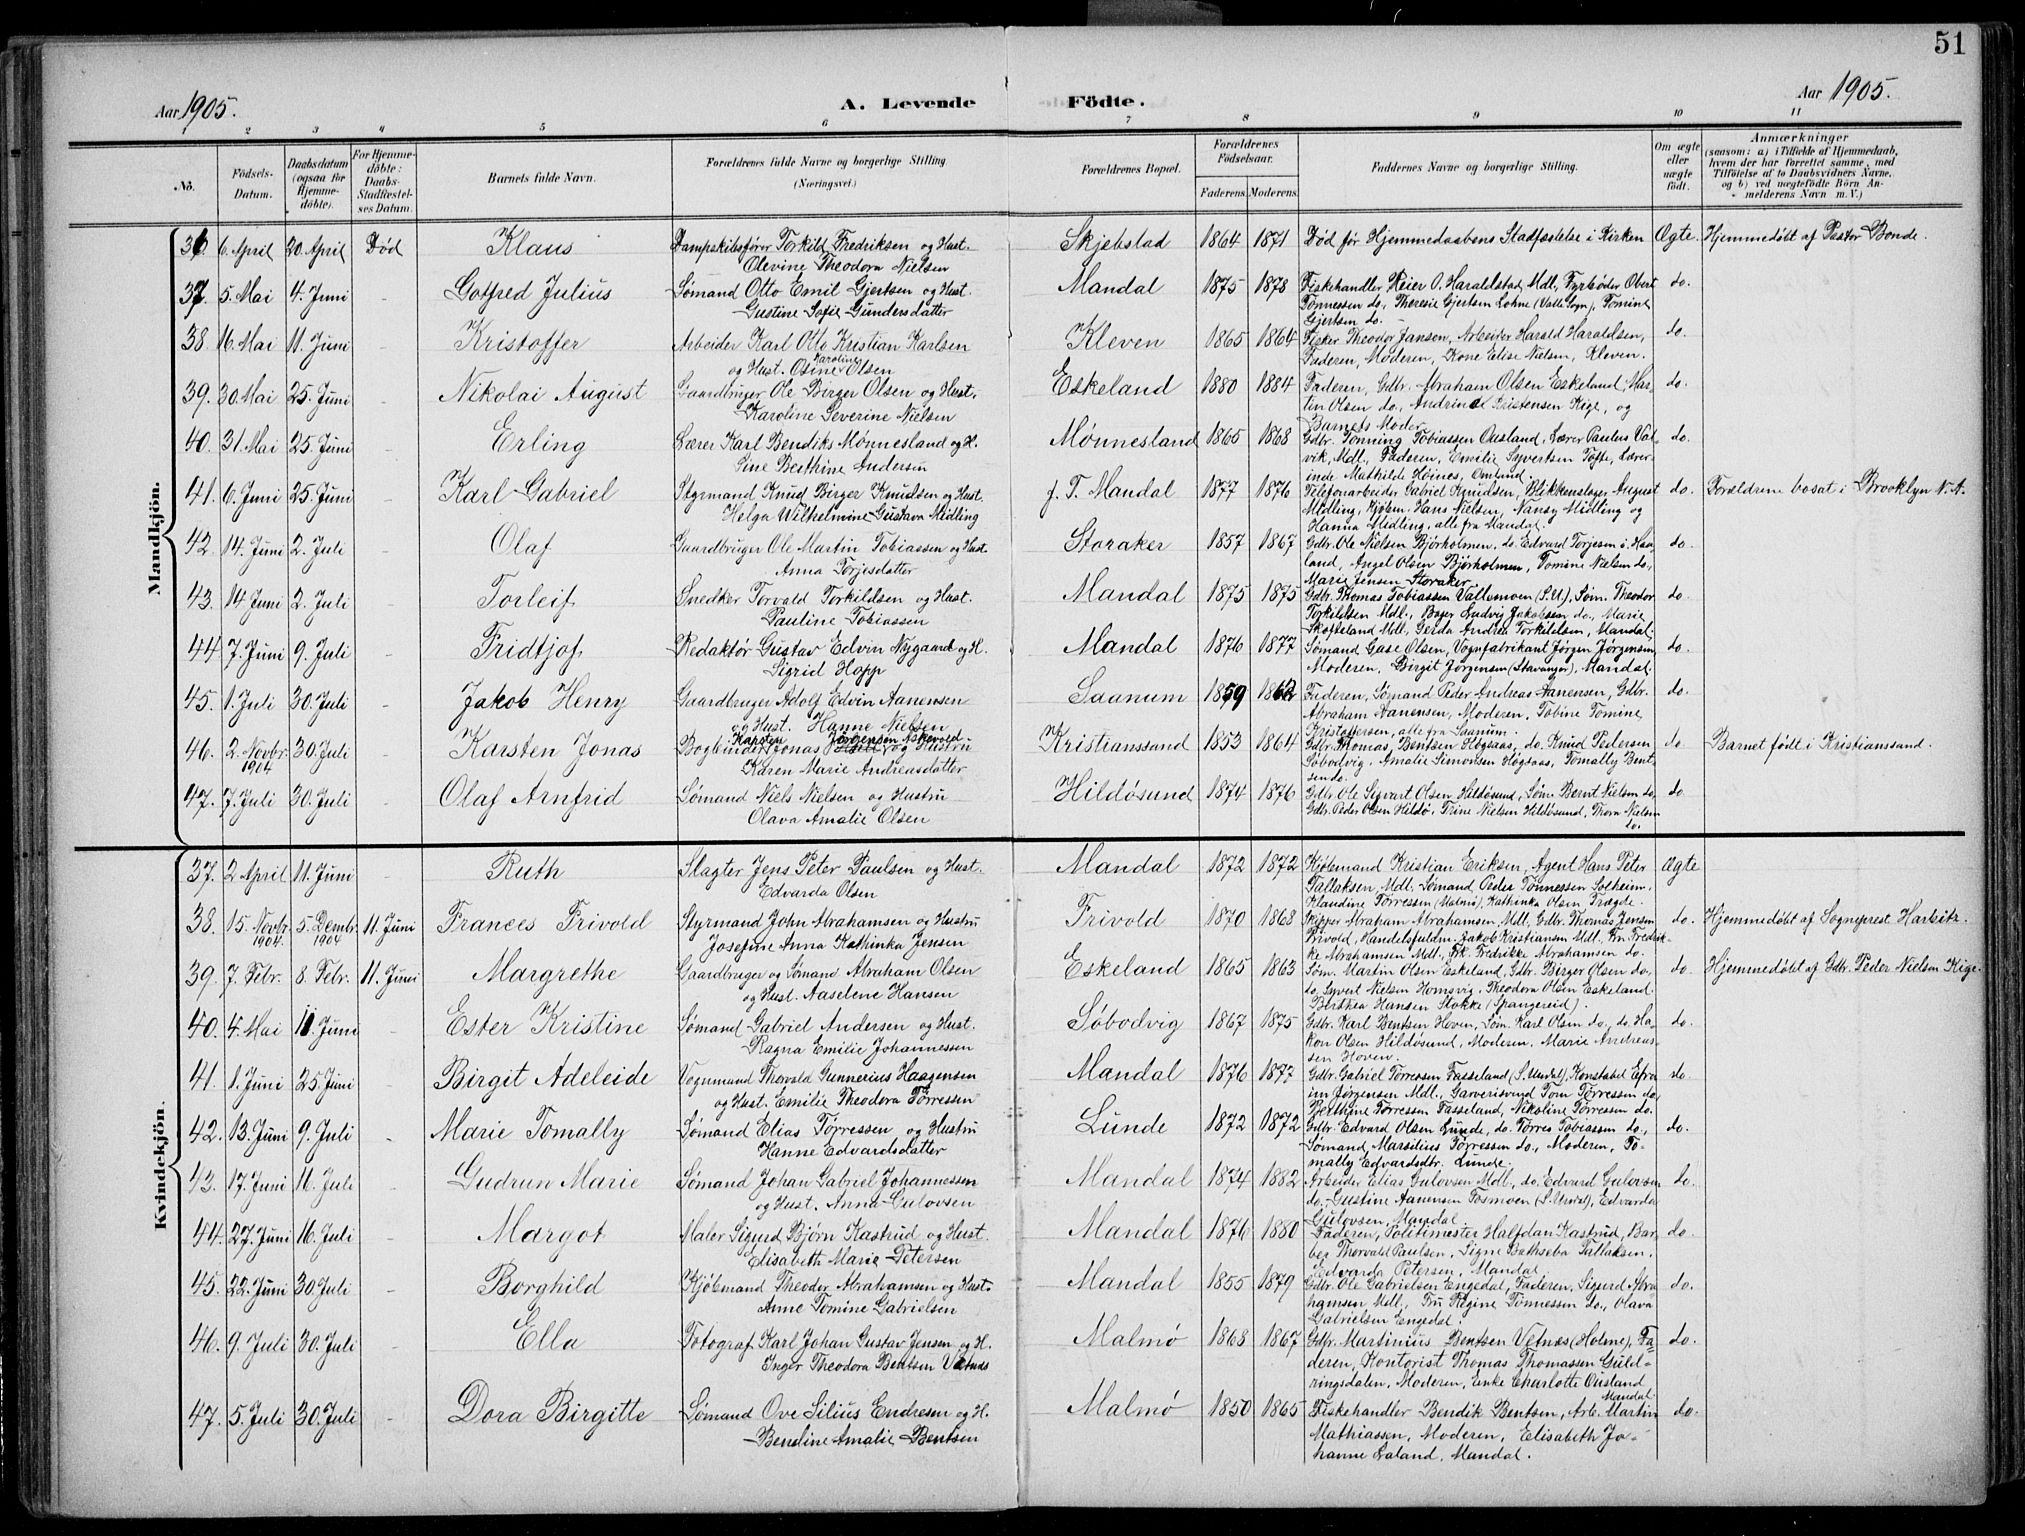 51
Aar 1905.
A. Levende Födte.
Aar 1905.
2 3 4 5 6 7 8 9 10 11
No.
Födsels-Datum.
Daabsdatum (ogsaa for Hjemmedöbte).
For Hjemmedöbte: Daabs-Stadfæstelses Datum.
Barnets fulde Navn.
Forældrenes fulde Navne og borgerlige Stilling. (Næringsvei.)
Forældrenes Bopæl.
Forældrenes Födselsaar.
Faderens. Moderens.
Faddernes Navne og borgerlige Stilling.
Om ægte eller uægte födt.
Anmærkninger
(saasom: a) i Tilfælde af Hjemmedaab, hvem der har forrettet samme, med Tilföielse af to Daabsvidners Navne, og b) ved uægtefödte Börn Anmelderens Navn m. V.)
Mandkjön.
36 6 April 20 April Död Klaus Dampskibsfører Torkild Fredriksen og Hust. Skjebstad 1864 1871 Død før Hjemmedaabens Stadfæstelse i Kirken Ægte. Hjemmedøbt af Pastor Bonde.
Olevine Theodora Nielsen
37. 5. Mai 4. Juni - Gotfred Julius Sømand Otto Emil Gjertsen og Hust. Mandal 1875 1878 Fiskehandler Reier O. Haraldstad, Mdl., Fyrbøder Obert do.
Gustine Sofie Gundersdatter Tønnessen do., Theresie Gjertsen Lohne (Valle Sogn), Tomine
Gjertsen do.
38. 16. Mai 11. Juni - Kristoffer Arbeider Karl Otto Kristian Karlsen Kleven 1865 1864 Fisker Theodor Jansen, Arbeider Harald Haraldsen, do.
og Hust. Osine Karoline Olsen Faderen, Moderen, Kone Elise Nielsen, Kleven.
39. 30. Mai 25. Juni - Nikolai August Gaardbruger Ole Birger Olsen og Hust. Eskeland 1880 1884 Faderen, Gdbr. Abraham Olsen Eskeland, Mar- do.
Karoline Severine Nielsen tin Olsen do., Andrine Kristensen Kige, og
Barnets Moder.
40. 31. Mai 25. Juni - Erling Lærer Karl Bendiks Mønnesland og H. Mønnesland 1865 1868 Gdbr. Tønning Tobiassen Ousland, Lærer Paulus Val- do.
Sine Berthine Andersen vik, Mdl., Faderen, Emilie Syvertsen Tofte, Lærer-
inde Mathilde Høines, Omland.
41. 6. Juni 25. Juni - Karl Gabriel Styrmand Knud Birger Knudsen og Hust. f. T. Mandal 1877 1876 Telefonarbeider Gabriel Knudsen, Blikkenslager August do. Forældrene bosat i Brooklyn N. A.
Helga Wilhelmine Gustava Midling Midling, Kjøbm. Hans Nielsen, Nansy Midling og
Hanna Midling, alle fra Mandal.
42. 14. Juni 2. Juli - Olaf Gaardbruger Ole Martin Tobiassen og Hust. Storaker 1857 1867 Gdbr. Ole Nielsen Bjørholmen, do. Edvard Torjesen o. Haa- do.
Anna Torjesdatter land, Angel Olsen Bjørholmen, Tomine Nielsen do.,
Marie Jensen Storaker.
43. 14 Juni 2. Juli - Torleif Snedker Torvald Torkildsen og Hust. Mandal 1875 1875 Gdbr. Thomas Tobiassen Vallemoen (S. U.), Søm. Theodor do.
Pauline Tobiassen Torkildsen Mdl., Bager Ludvig Jakobsen do., Marie
Skofteland Mdl., Gerda Andrea Torkildsen, Mandal.
44 7. Juni 9. Juli - Fridtjof Redaktør Gustav Edvin Nygaard og H. Mandal 1876 1877 Sømand Gase Olsen, Vognfabrikant Jørgen Jørgensen, do.
Sigrid Hopp Moderen, Birgit Jørgensen (Stavanger), Mandal.
45. 1. Juli 30. Juli - Jakob Henry Gaardbruger Adolf Edvin Aanensen Saanum 1859 1862 Faderen, Sømand Peder Andreas Aanensen, Gdbr. do.
og Hust. Hanne Nielsen Abraham Aanensen, Moderen, Tobine Tomine
Kristoffersen, alle fra Saanum.
46. 2. Novbr. 1904 30. Juli - Karsten Jonas Bogbinder Karsten Jonas Jørgensen Askevold og Hustru Kristianssand 1853 1864 Gdbr. Thomas Bentsen Høgsaas, do. Knud Pedersen do. Barnet født i Kristianssand.
Karen Marie Andreasdatter Søbodvig, Amalie Simonsen Høgsaas, Tomally Bent-
sen do.
47. 7. Juli 30. Juli - Olaf Arnfrid Sømand Niels Nielsen og Hustru Hildøsund 1874 1876 Gdbr. Ole Sigvart Olsen Hildøsund, Søm. Bervit Nielsen do. do.
Olava Amalie Olsen Gdbr. Peder Olsen Hildø, Trine Nielsen Hildøsund, Thora Nielsen
do.
Kvindekjön.
37. 2 April 11. Juni Ruth Slagter Jens Peter Paulsen og Hust. Mandal 1872 1872 Kjøbmand Kristian Eriksen, Agent Hans Peter Ægte
Edvarda Olsen Tallaksen, Mdl. Sømand Peder Tønnessen Solheim,
Klaudine Tørressen (Malmø), Kathinka Olsen Trægde.
38. 15. Novbr. 1904. 5. Decmbr. 1904 11. Juni Frances Frivold Styrmand John Abrahamsen og Hustru Frivold 1870 1868 Skipper Abraham Abrahamsen Mdl., Gdbr. Thomas Jensen do. Hjemmedøbt af Sogneprest Harbitz.
Josefine Anna Kathinka Jensen Frivold, Handelsfuldm. Jakob Kristiansen Mdl., Frn Fredrik-
ke Abrahamsen Mdl., Frk. Fredrikke Abrahamsen do.
39. 7 Febr. 8 Febr. 11. Juni Margrethe Gaardbruger og Sømand Abraham Olsen Eskeland 1865 1863 Søm. Martin Olsen Eskeland, Gdbr. Birger Olsen do., do. Hjemmedøbt af Gdbr. Peder Nielsen Kige.
og Hust. Aaselene Hansen do. Syvert Nielsen Homsvig, Theodora Olsen Eskeland.
Berthea Hansen Stokke (Spangereid).
40. 4. Mai 11. Juni - Ester Kristine Sømand Gabriel Andersen og Hust. Søbodvig 1867 1875 Gdbr. Karl Bentsen Hoven, Søm. Karl Olsen do., do. Ha- do.
Ragna Emilie Johannessen kon Olsen Hildøsund, Moderen, Marie Andreas-
sen Hoven.
41. 1. Juni 25. Juni - Birgit Adeleide Vognmand Thorvald Gunnerius Haagensen Mandal 1876 1877 Gdbr. Gabriel Tørressen Fasseland (S. Undal), Konstabel Efra- do.
og Hust. Emilie Theodora Tørressen im Jørgensen Mdl., Garverisvend Tom Tørressen do.
Berthine Tørressen Fasseland, Nikoline Tørressen do.
42. 13. Juni 9. Juli - Marie Tomally Sømand Elias Tørressen og Hustru Lunde 1872 1872 Gdbr. Edvard Olsen Lunde, do. Tørres Tobiassen do., do.
Hanne Edvardsdatter Sømand Marselius Tørressen do., Moderen, To-
mally Edvardsdtr. Lunde.
43. 17. Juni 16. Juli Gudrun Marie Sømand Johan Gabriel Johannessen Mandal 1874 1882 Arbeider Elias Gulovsen Mdl., do. Edvard Gulovsen do.
og Hust. Anna Gulovsen do., Gustine Aanensen Fosmoen (S. Undal), Edvarda
Gulovsen, Mandal.
44. 27. Juni 16. Juli Margot Maler Sigurd Bjørn Kastrud og Hust. Mandal 1876 1880 Faderen, Politimester Halfdan Kastrud, Bar- do.
Elisabeth Marie Petersen ber Thorvald Paulsen, Signe Bathseba Tallaksen,
Edvarda Petersen, Mandal.
45. 22. Juni 30 Juli Borghild Kjøbmand Theodor Abrahamsen og Hust. Mandal 1855 1879 Gdbr. Ole Gabrielsen Engedal, Faderen, Sigurd Abra- do.
Anne Tomine Gabrielsen hamsen Mdl., Fru Regine Tønnessen do., Olava
Gabrielsen Engedal.
46. 9. Juli 30. Juli Ella Fotograf Karl Johan Gustav Jensen og H. Malmø 1868 1867 Gdbr. Martinius Bentsen Vetnæs (Holme), Fa- do.
Inger Theodora Bentsen Vetnæs deren, Kontorist Thomas Thomassen Guld-
ringsdalen, Moderen, Enke Charlotte Ousland
Mandal.
47. 5. Juli 30. Juli Dora Birgitte Sømand Ove Silius Endresen og H. Malmø 1850 1865 Fiskehandler Bendik Bentsen, Arb. Martin do.
Bendine Amalie Bentsen Mathiassen, Moderen, Elisabeth Jo-
hanne Laland, Mandal.